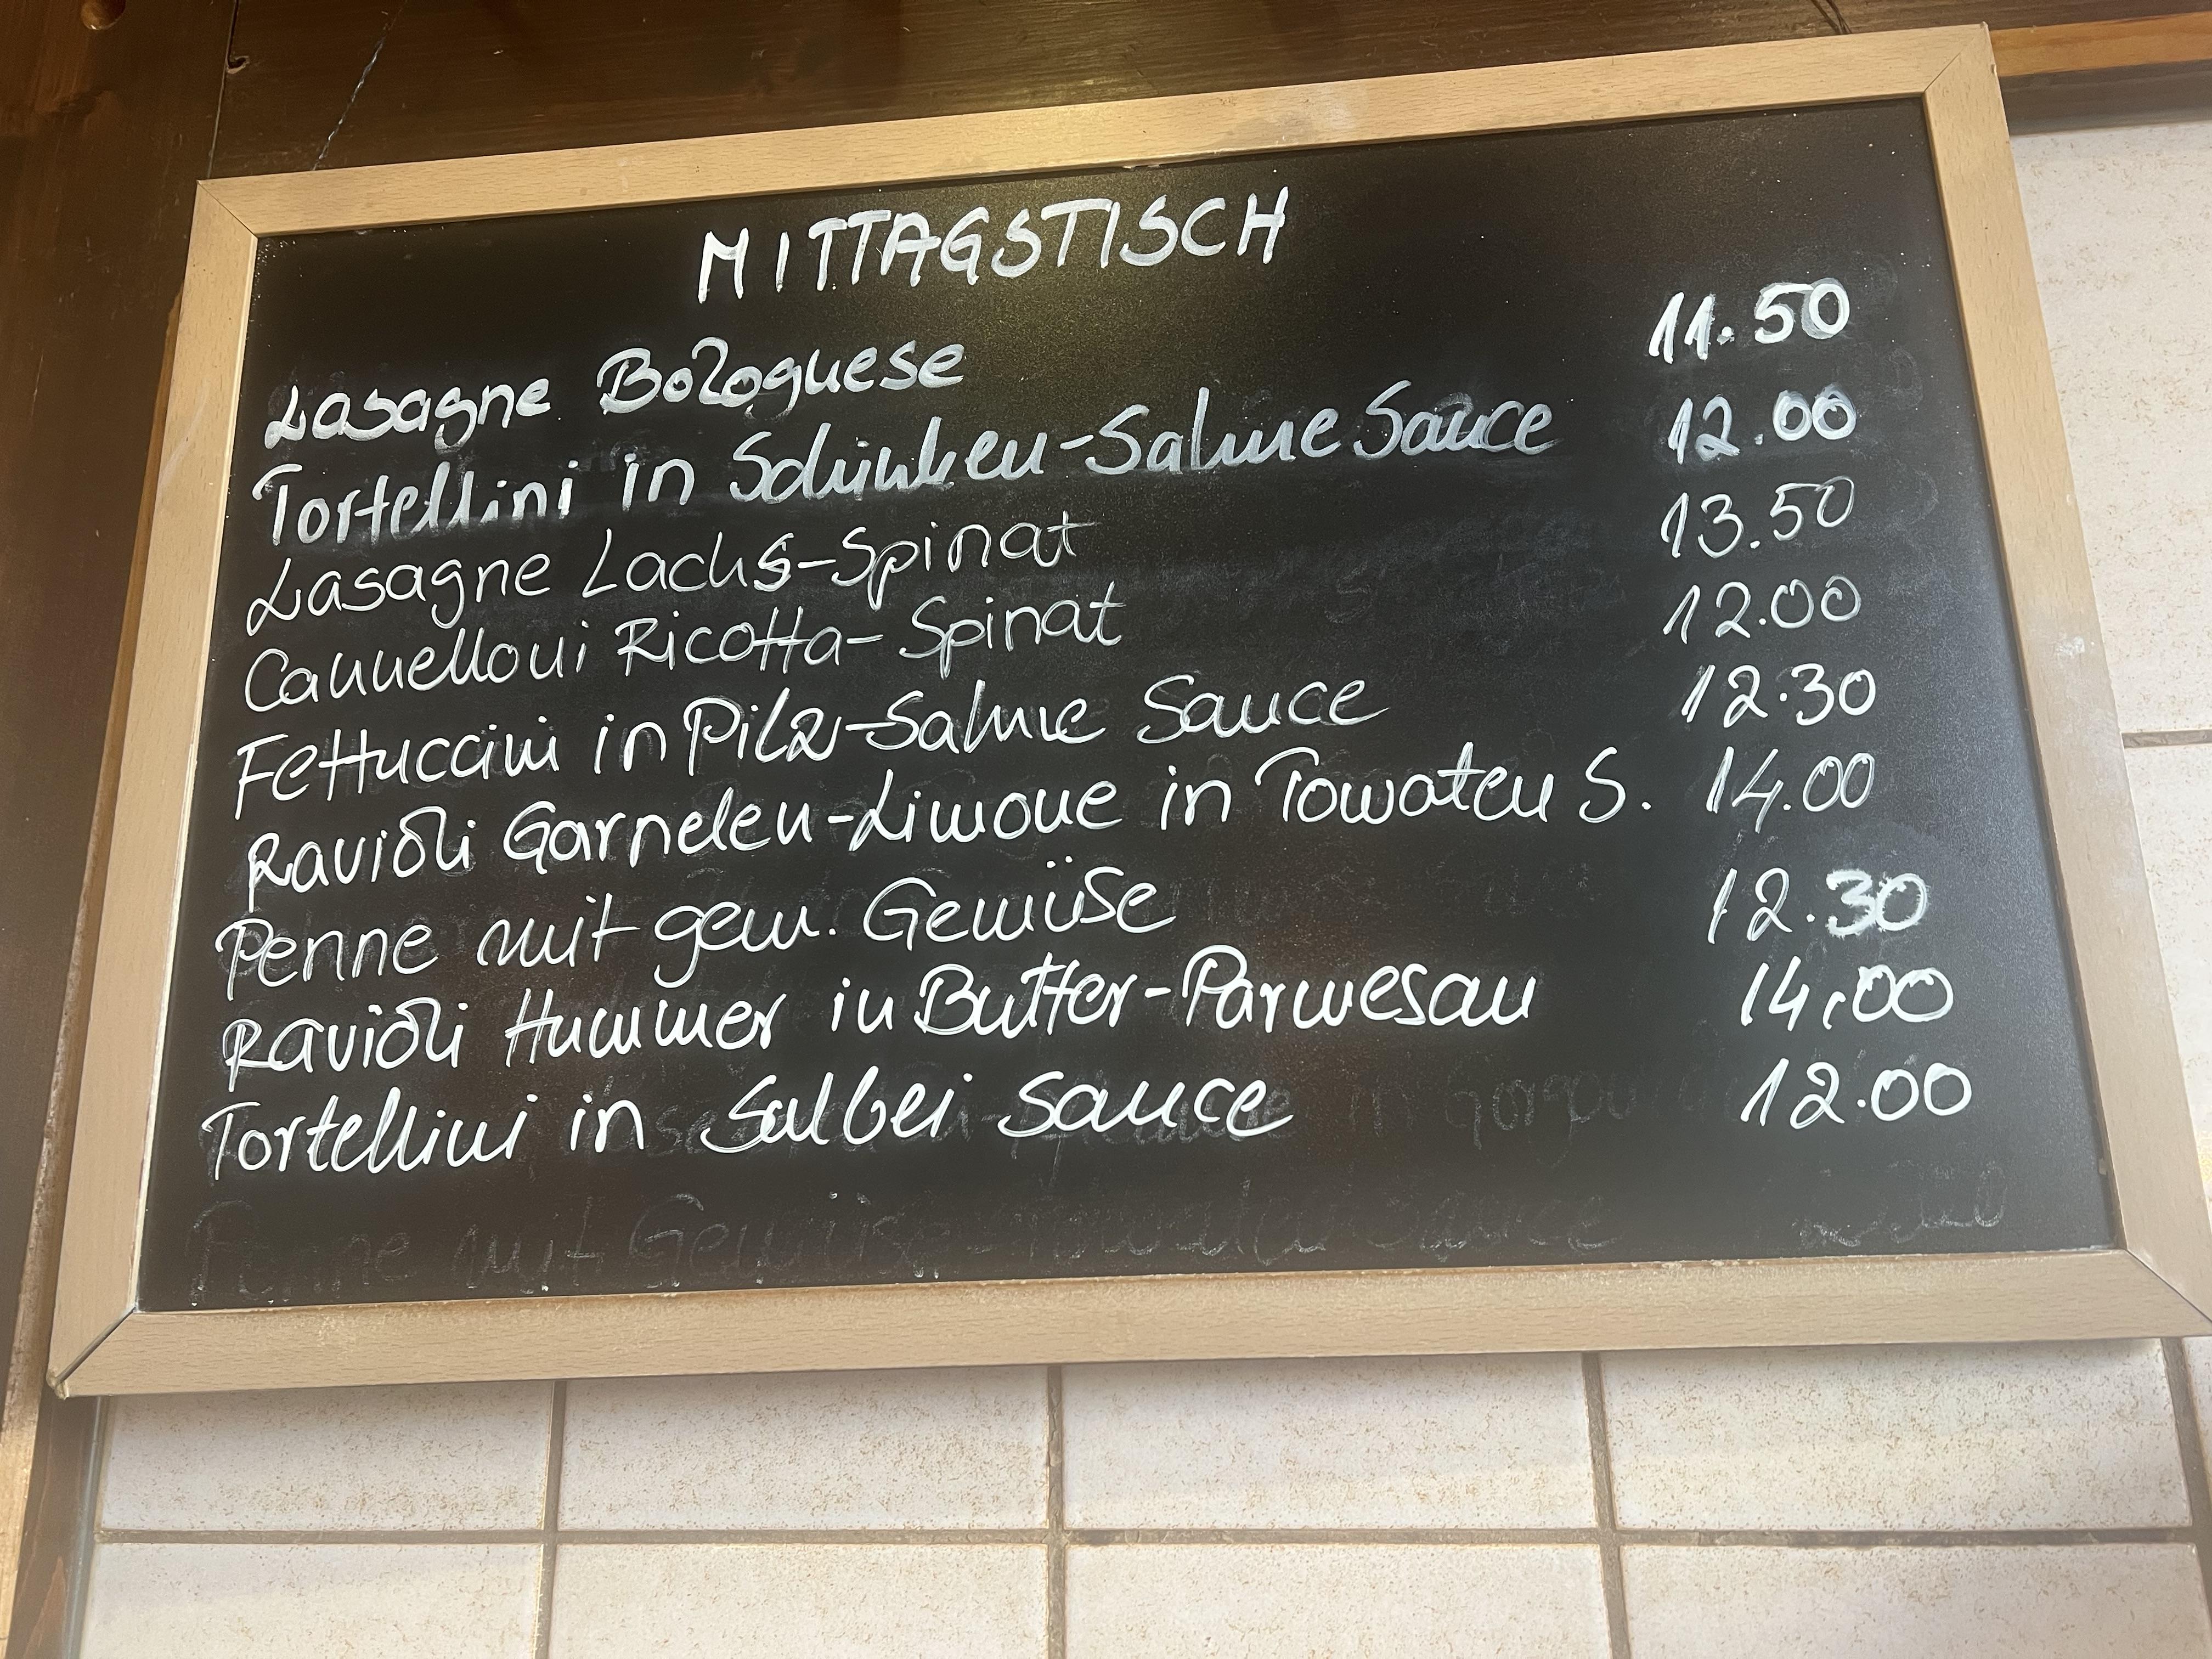 MITTAGSTISCH
Lasagne Bolognese 11.50
Tortellini in Schinken-Sahne Sauce 12.00
Lasagne Lachs-Spinat 13.50
Cannelloni Ricotta-Spinat 12.00
Fettuccini in Pilz-Sahne Sauce 12.30
Ravioli Garnelen-Limone in Tomaten S. 14.00
Penne mit gem. Gemüse 12.30
Ravioli Hummer in Butter-Parmesan 14,00
Tortellini in Salbei Sauce 12.00
Penne mit Gemüse-Tomaten Sauce